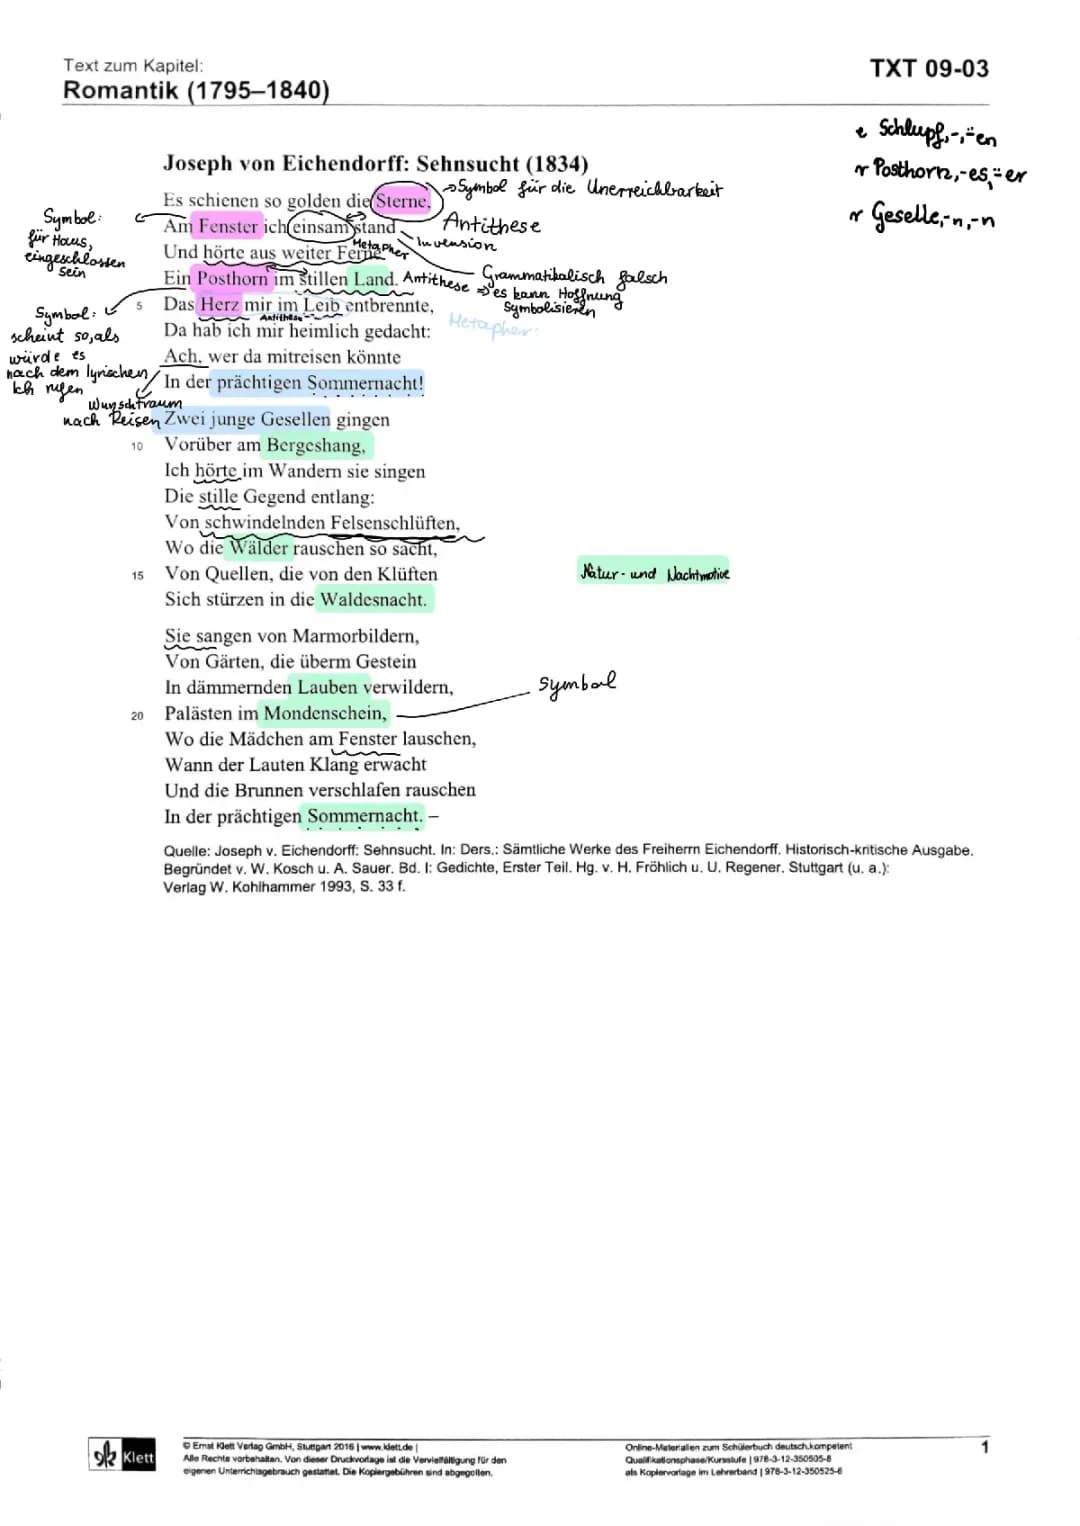 Text zum Kapitel:
Romantik (1795–1840)
TXT 09-03
e Schlupf,-,¨en
r Posthorn,-es,¨er
r Geselle,-n,-n
Joseph von Eichendorff: Sehnsucht (1834)
Es schienen so golden die Sterne,
→Symbol für die Unerreichbarkeit
Am Fenster ich einsam stand
Antithese
Inversion
Symbol:
für Haus,
eingeschlossen
sein
Und hörte aus weiter Ferne
Metapher
Ein Posthorn im stillen Land.
Antithese
Grammatikalisch falsch
⇒es kann Hoffnung
Symbolisieren
5 Das Herz mir im Leib entbrennte,
Antithese
Metapher:
Symbol:
scheint so, als
würde es
nach dem lyrischen
Ich rufen
Da hab ich mir heimlich gedacht:
Ach, wer da mitreisen könnte
In der prächtigen Sommernacht!
Wunschtraum
nach Reisen
Zwei junge Gesellen gingen
10 Vorüber am Bergeshang,
Ich hörte im Wandern sie singen
Die stille Gegend entlang:
Von schwindelnden Felsenschlüften,
Wo die Wälder rauschen so sacht,
15 Von Quellen, die von den Klüften
Natur- und Nachtmotive
Sich stürzen in die Waldesnacht.
Sie sangen von Marmorbildern,
Von Gärten, die überm Gestein
In dämmernden Lauben verwildern,
Symbol
20 Palästen im Mondenschein,
Wo die Mädchen am Fenster lauschen,
Wann der Lauten Klang erwacht
Und die Brunnen verschlafen rauschen
In der prächtigen Sommernacht. –
Quelle: Joseph v. Eichendorff: Sehnsucht. In: Ders.: Sämtliche Werke des Freiherrn Eichendorff. Historisch-kritische Ausgabe.
Begründet v. W. Kosch u. A. Sauer. Bd. I: Gedichte, Erster Teil. Hg. v. H. Fröhlich u. U. Regener. Stuttgart (u. a.):
Verlag W. Kohlhammer 1993, S. 33 f.
Klett
© Ernst Klett Verlag GmbH, Stuttgart 2016 | www.klett.de |
Alle Rechte vorbehalten. Von dieser Druckvorlage ist die Vervielfältigung für den
eigenen Unterrichtsgebrauch gestattet. Die Kopiergebühren sind abgegolten.
Online-Materialien zum Schülerbuch deutsch.kompetent
Qualifikationsphase/Kursstufe | 978-3-12-350505-8
als Kopiervorlage im Lehrerband | 978-3-12-350525-6
1